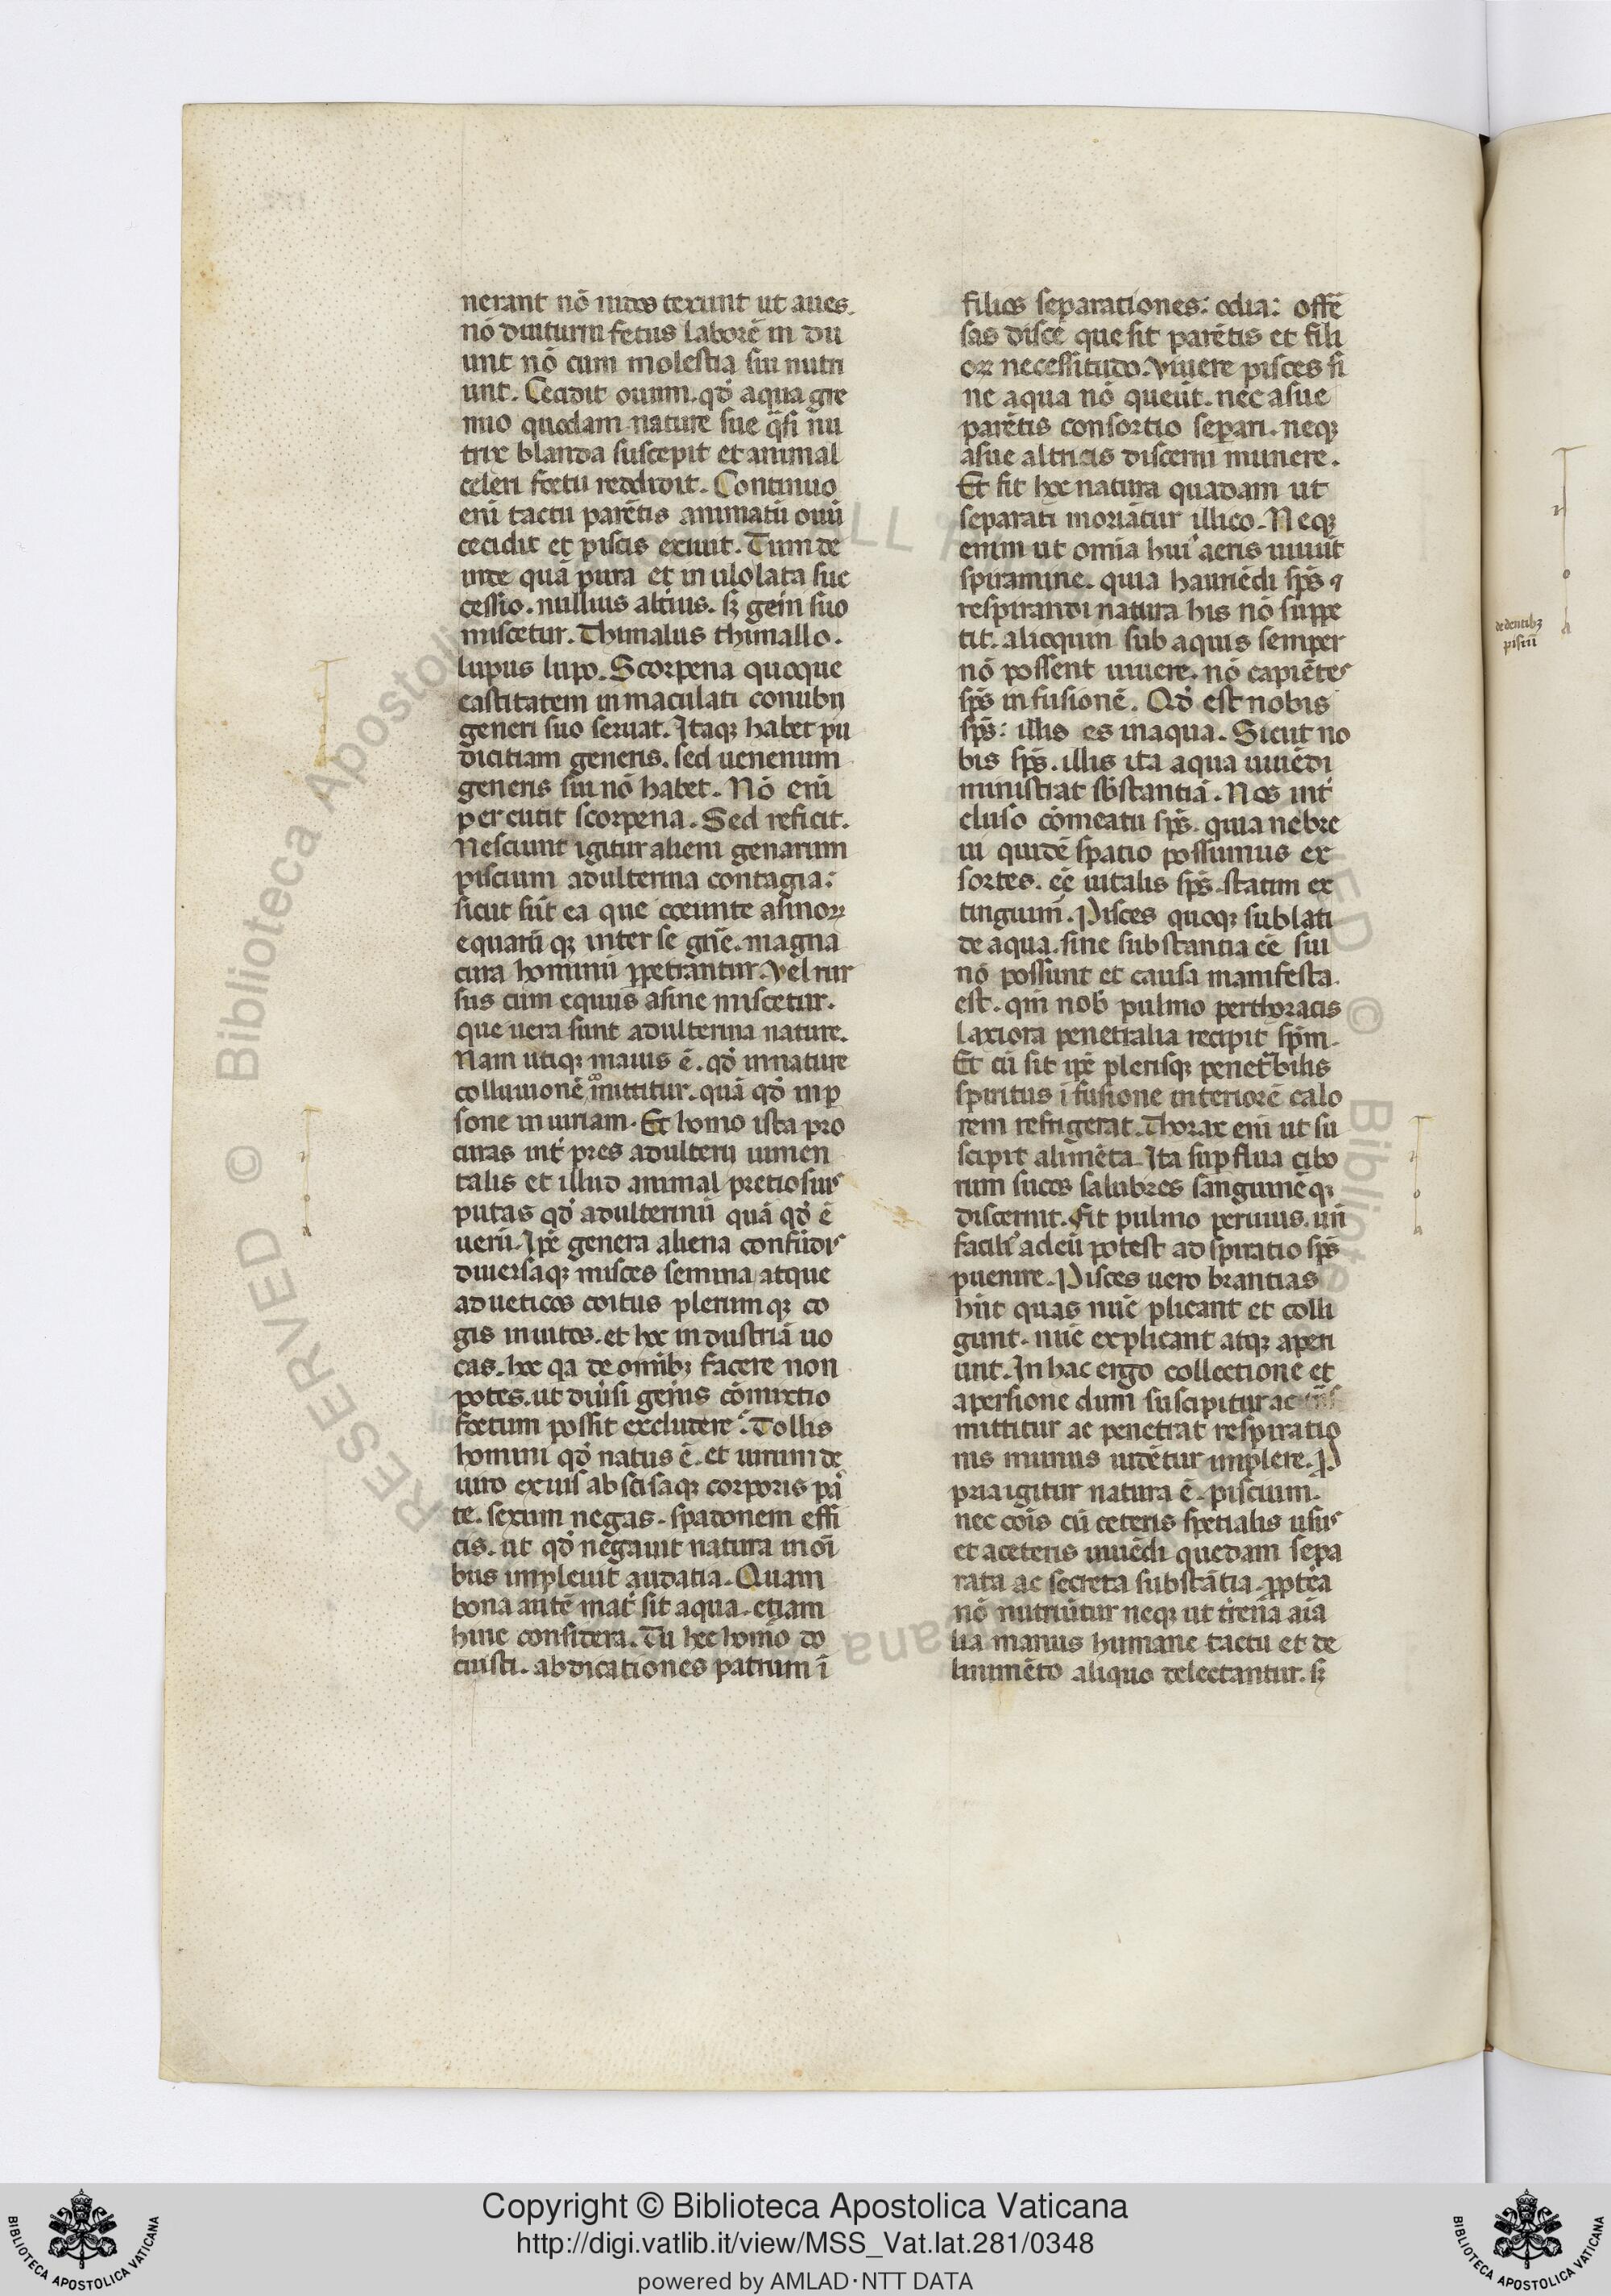 nerant nō nidos texunt ut aues.
nō diuturni fetus laborē in du
unt nō cum molestia sui nutri
unt. Cecidit ouum. qđ aqua gre
mio quodam nature sue q̄si nu
trix blanda suscepit et animal
celeri foetu reddidit. Continuo
eni tactu parētis animatū ouū
cecidit et piscis exiuit. Tum de
inde quā pura et in uiolata suc
cessio. nullius altius. sꝫ gein suo
miscetur. Thimalus thimallo.
lupus lupo. Scorpena quoque
castitatem in maculati conubii
generi suo seruat. Itaqꝫ habet pu
dicitiam generis. sed uenenum
generis sui nō habet. Nō eni
percutit scorpena. Sed reficit.
Nesciunt igitur alieni genarum
piscium adulterina contagia:
sicut sūt ea que coeunte asinoꝝ
equarū qꝫ inter se gn̄e. magna
cura hominū ꝑpetrantur. Vel rur
sus cum equus asine miscetur.
que uera sunt adulterina nature.
Nam utiqꝫ maius ē. qđ in nature
colluuionē comittitur. quā qđ in ꝑ
sone iniuriam. Et homo ista pro
curas int̄ pres adulterii iumen
talis et illud animal pretiosius
putas qđ adulterinū quā qđ ē
uerū. Ip̄e genera aliena confūdis
diuersaqꝫ misces semina atque
ad ueticos coitus plerumqꝫ co
gis inuitos. et hoc industriā uo
cas. hoc qa de omībꝫ facere non
potes. ut diuīsi genus cōmixtio
foetum possit excludere. Tollis
homini qđ natus ē. et uirum de
uiro exuis abscisaqꝫ corporis pa
te. sexum negas. spadonem effi
cis. ut qđ negauit natura in oī
bus impleuit audatia. Quam
bona autē mat̄ sit aqua. etiam
hinc considera. Tu hec homo do
cuisti. abdicationes patrum ī
filios separationes: odia: offē
sas disce que sit parētis et fili
oꝝ necessitudo. Viuere pisces si
ne aqua nō queūt. nec a sue
parētis consortio separi. neqꝫ
a sue altricis discerni munere.
Et fit hoc natura quadam ut
separati moriātur illico. Neqꝫ
enim ut omīa hui' aeris uiuūt
spiramine. quia hauriēdi sp̄s ⁊
respirandi natura his nō suppe
tit. alioquin sub aquis semper
nō possent uiuere. nō capiētes
sp̄s in fusionē. Qđ est nobis
sp̄s: illis es in aqua. Sicut no
bis sp̄s. illis ita aqua uiuēdi
ministrat sb̄stantiā. Nos int̄
cluso cōmeatu sp̄s. quia ne bre
ui quidē spatio possumus ex
sortes. eē uitalis sp̄s. statim ex
tinguim̄. Pisces quoqꝫ sublati
de aqua. sine substantia eē sui
nō possunt et causa manifesta.
est. qm̄ nob̄ pulmo per thoracis
laxiora penetralia recipit sp̄m.
Et cū sit ip̄e plerisqꝫ penet̄bilis
spiritus īfusione interiorē calo
rem refrigerat. Thorax eni ut su
scipit alimēta. Ita suꝑflua cibo
rum succos salubres sanguinēqꝫ
discernit. Fit pulmo peruius. un̄
facili' ad eū potest adspiratio sp̄s
ꝑuenire. Pisces uero brantias
hn̄t quas nūc plicant et colli
gunt. nūc explicant atqꝫ aperi
unt. In hac ergo collectione et
apersione dum suscipitur ac trās
mittitur ac penetrat respiratio
nis munus uidētur implere. P
pria igitur natura ē. piscium.
nec cōis cū ceteris spetialis usus
et a ceteris uiuēdi quedam sepa
rata ac secreta substātia. ꝓpterea
nō nutriūtur neqꝫ ut t̄rena aīa
lia manus humane tactu et de
linimēto aliquo delectantur. sꝫ
de dentibꝫ
pisciū
nota
nota
nota
© Biblioteca Apostolica Vaticana
ALL RIGHTS RESERVED
Copyright © Biblioteca Apostolica Vaticana
http://digi.vatlib.it/view/MSS_Vat.lat.281/0348
powered by AMLAD·NTT DATA
BIBLIOTECA APOSTOLICA VATICANA
BIBLIOTECA APOSTOLICA VATICANA